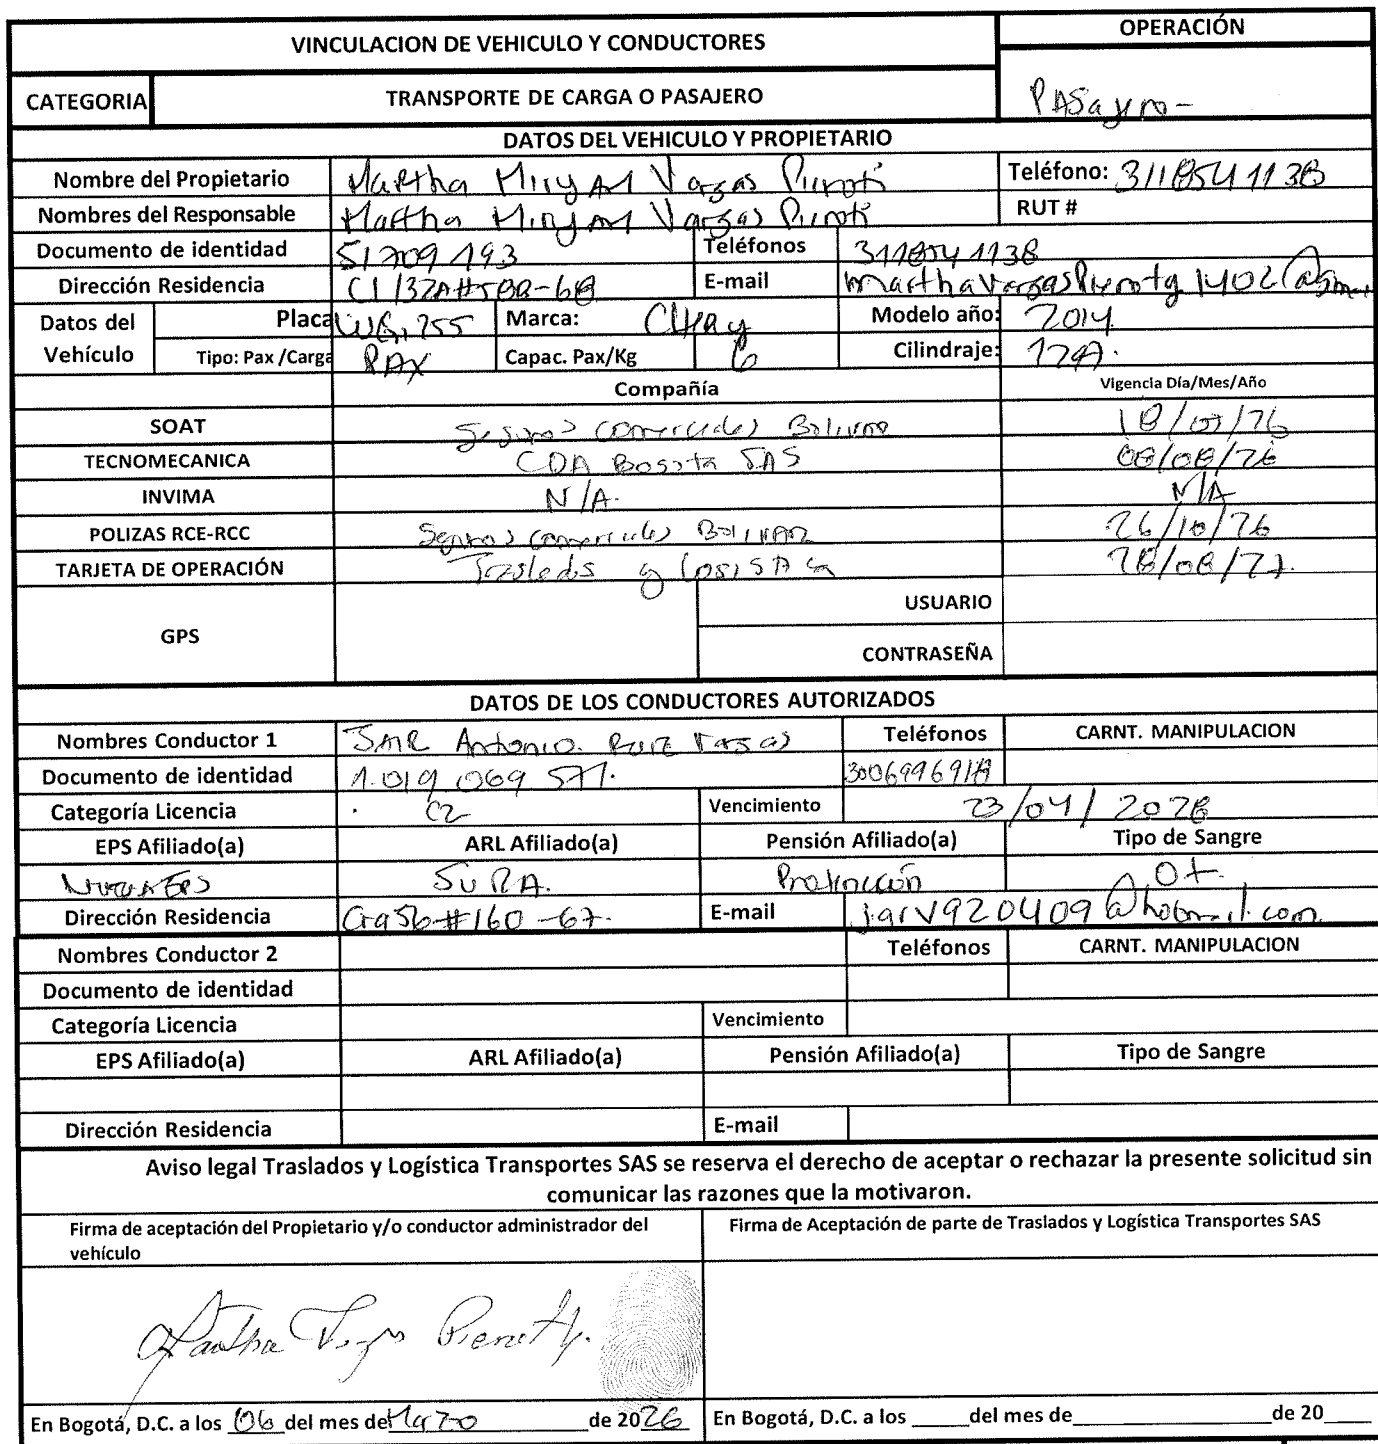 VINCULACION DE VEHICULO Y CONDUCTORES OPERACIÓN
CATEGORIA TRANSPORTE DE CARGA O PASAJERO PASajero-
DATOS DEL VEHICULO Y PROPIETARIO
Nombre del Propietario Martha Miryam Vargas Pieroti Teléfono: 3118541138
Nombres del Responsable Martha Miryam Vargas Pieroti RUT #
Documento de identidad 51709193 Teléfonos 3118541138
Dirección Residencia Cl 132A#58B-68 E-mail
Datos del Vehículo Placa Marca: Chery Modelo año: 2014
Tipo: Pax /Carga PAX Capac. Pax/Kg 6 Cilindraje:
Compañía Vigencia Día/Mes/Año
SOAT Seguros comerciales Bolivar
TECNOMECANICA CDA Bogota SAS 08/08/26
INVIMA N/A. N/A
POLIZAS RCE-RCC Seguros comerciales BOLIVAR 26/10/26
TARJETA DE OPERACIÓN Traslados y logistica 28/08/27.
GPS USUARIO
CONTRASEÑA
DATOS DE LOS CONDUCTORES AUTORIZADOS
Nombres Conductor 1 Antonio. Ruiz Vargas Teléfonos CARNT. MANIPULACION
Documento de identidad 1.019 069 571.
Categoría Licencia C2 Vencimiento 23/04/2028
EPS Afiliado(a) ARL Afiliado(a) Pensión Afiliado(a) Tipo de Sangre
Nueva EPS SURA. Protección O+
Dirección Residencia Cra56#160-67. E-mail jarv920409@hotmail.com
Nombres Conductor 2 Teléfonos CARNT. MANIPULACION
Documento de identidad
Categoría Licencia Vencimiento
EPS Afiliado(a) ARL Afiliado(a) Pensión Afiliado(a) Tipo de Sangre
Dirección Residencia E-mail
Aviso legal Traslados y Logística Transportes SAS se reserva el derecho de aceptar o rechazar la presente solicitud sin
comunicar las razones que la motivaron.
Firma de aceptación del Propietario y/o conductor administrador del
vehículo
Firma de Aceptación de parte de Traslados y Logística Transportes SAS
Martha Vargas Pieroti.
En Bogotá, D.C. a los 06 del mes de Marzo de 2026
En Bogotá, D.C. a los _____del mes de__________________de 20____